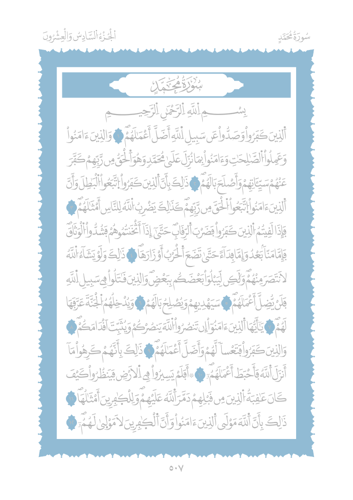 سُورَةُ مُحَمَّدٍ
الجُزْءُ السَّادِسُ وَالعِشْرُونَ
سُورَةُ مُحَمَّدٍ
بِسْمِ ٱللَّهِ ٱلرَّحْمَٰنِ ٱلرَّحِيمِ
ٱلَّذِينَ كَفَرُوا۟ وَصَدُّوا۟ عَن سَبِيلِ ٱللَّهِ أَضَلَّ أَعْمَٰلَهُمْ ۝١ وَٱلَّذِينَ ءَامَنُوا۟
وَعَمِلُوا۟ ٱلصَّٰلِحَٰتِ وَءَامَنُوا۟ بِمَا نُزِّلَ عَلَىٰ مُحَمَّدٍ وَهُوَ ٱلْحَقُّ مِن رَّبِّهِمْ كَفَّرَ
عَنْهُمْ سَيِّـَٔاتِهِمْ وَأَصْلَحَ بَالَهُمْ ۝٢ ذَٰلِكَ بِأَنَّ ٱلَّذِينَ كَفَرُوا۟ ٱتَّبَعُوا۟ ٱلْبَٰطِلَ وَأَنَّ
ٱلَّذِينَ ءَامَنُوا۟ ٱتَّبَعُوا۟ ٱلْحَقَّ مِن رَّبِّهِمْ كَذَٰلِكَ يَضْرِبُ ٱللَّهُ لِلنَّاسِ أَمْثَٰلَهُمْ ۝٣
فَإِذَا لَقِيتُمُ ٱلَّذِينَ كَفَرُوا۟ فَضَرْبَ ٱلرِّقَابِ حَتَّىٰٓ إِذَآ أَثْخَنتُمُوهُمْ فَشُدُّوا۟ ٱلْوَثَاقَ
فَإِمَّا مَنًّۢا بَعْدُ وَإِمَّا فِدَآءً حَتَّىٰ تَضَعَ ٱلْحَرْبُ أَوْزَارَهَا ۝٤ ذَٰلِكَ وَلَوْ يَشَآءُ ٱللَّهُ
لَٱنتَصَرَ مِنْهُمْ وَلَٰكِن لِّيَبْلُوَا۟ بَعْضَكُم بِبَعْضٍ وَٱلَّذِينَ قَٰتَلُوا۟ فِى سَبِيلِ ٱللَّهِ
فَلَن يُضِلَّ أَعْمَٰلَهُمْ ۝٥ سَيَهْدِيهِمْ وَيُصْلِحُ بَالَهُمْ ۝٦ وَيُدْخِلُهُمُ ٱلْجَنَّةَ عَرَّفَهَا
لَهُمْ ۝٧ يَٰٓأَيُّهَا ٱلَّذِينَ ءَامَنُوٓا۟ إِن تَنصُرُوا۟ ٱللَّهَ يَنصُرْكُمْ وَيُثَبِّتْ أَقْدَامَكُمْ ۝٨
وَٱلَّذِينَ كَفَرُوا۟ فَتَعْسًا لَّهُمْ وَأَضَلَّ أَعْمَٰلَهُمْ ۝٩ ذَٰلِكَ بِأَنَّهُمْ كَرِهُوا۟ مَآ
أَنزَلَ ٱللَّهُ فَأَحْبَطَ أَعْمَٰلَهُمْ ۝١٠ ۞ أَفَلَمْ يَسِيرُوا۟ فِى ٱلْأَرْضِ فَيَنظُرُوا۟ كَيْفَ
كَانَ عَٰقِبَةُ ٱلَّذِينَ مِن قَبْلِهِمْ دَمَّرَ ٱللَّهُ عَلَيْهِمْ وَلِلْكَٰفِرِينَ أَمْثَٰلُهَا ۝١١
ذَٰلِكَ بِأَنَّ ٱللَّهَ مَوْلَى ٱلَّذِينَ ءَامَنُوا۟ وَأَنَّ ٱلْكَٰفِرِينَ لَا مَوْلَىٰ لَهُمْ ۝١٢
٥٠٧